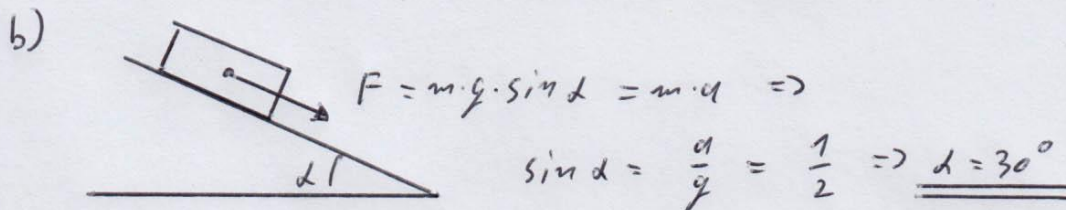 b)
F = m·g·sin α = m·a =>
α
sin α = a/g = 1/2 => α = 30°